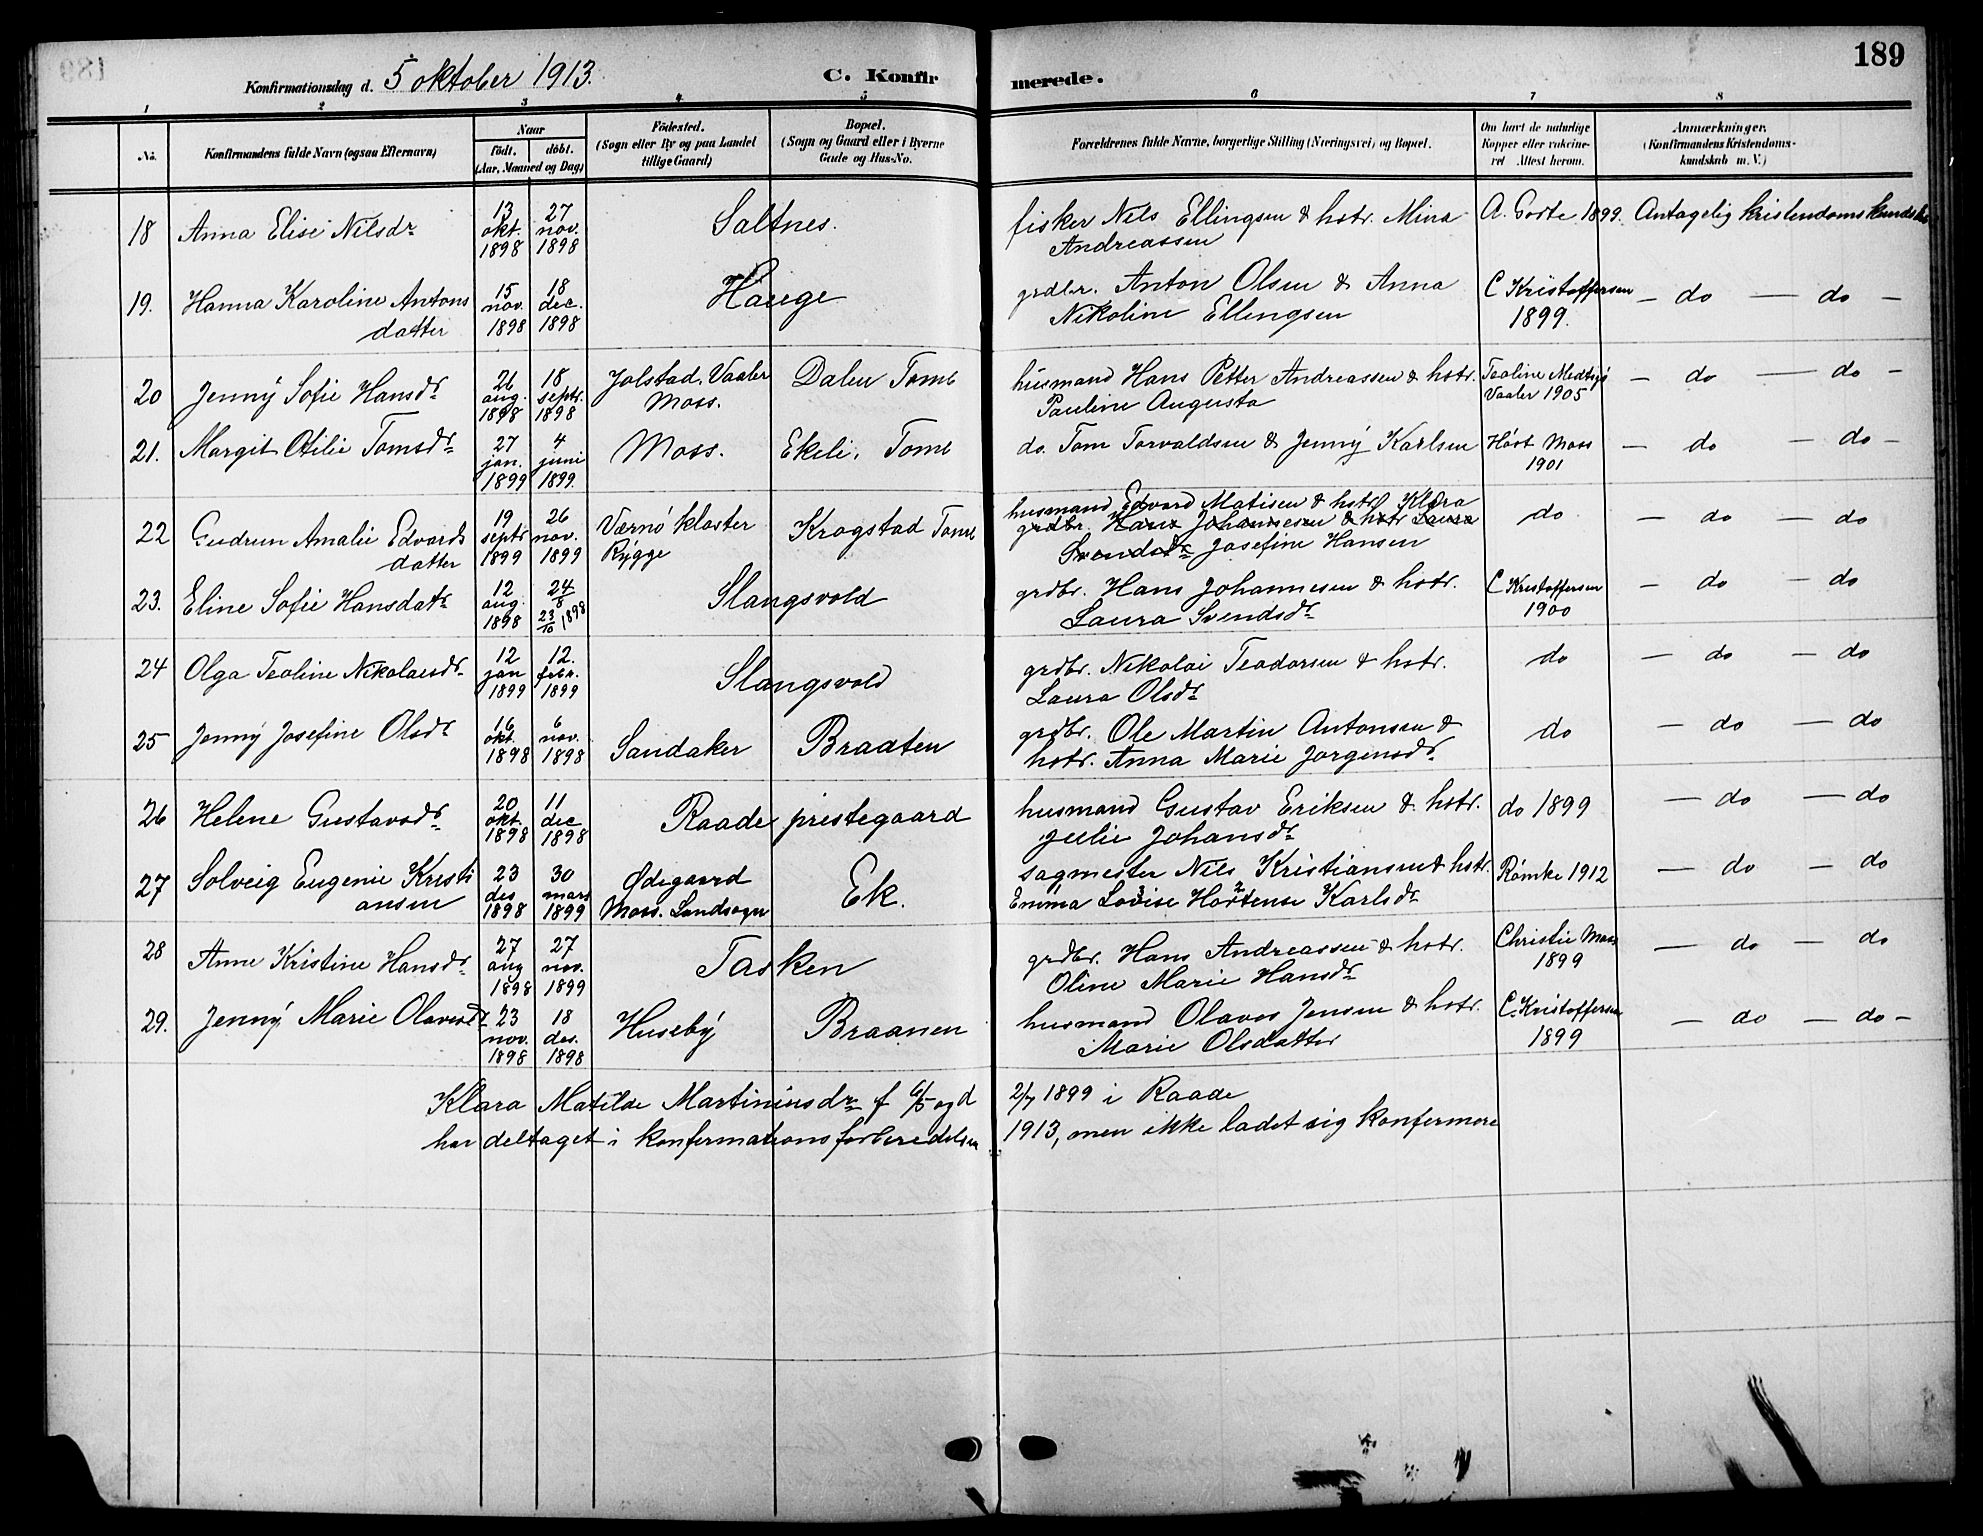 189
Konfirmationsdag d. 5 oktober 1913. C. Konfirmerede.
1 2 3 4 5 6 7 8
No. Konfirmandens fulde Navn (ogsaa Efternavn) Naar født. døbt. (Aar, Maaned og Dag) Fødested. (Sogn eller By og paa Landet tillige Gaard) Bopæl. (Sogn og Gaard eller i Byerne Gade og Hus-No. Forældrenes fulde Navne, borgerlige Stilling (Næringsvei) og Bopæl. Om havt de naturlige Kopper eller vakcineret Attest herom. Anmærkninger. (Konfirmandens Kristendomskundskab m. V.)
18 Anna Elise Nilsdr 13 okt. 1898 27 nov. 1898 Saltnes. fisker Nils Ellingsen & hstr. Mina Andreassen A. Gorte 1899. Antagelig kristendomskundskab
19. Hanna Karoline Antons datter 15 nov. 1898 18 dec. 1898 Hauge grdbr. Anton Olsen & Anna Nikoline Ellingsen C Kristoffersen 1899. — do — do —
20 Jenny Sofie Hansdr 26 aug. 1898 18 septr. 1898 Jolstad, Vaaler Moss. Dalen Tomb husmand Hans Petter Andreassen & hstr. Pauline Augusta Teoline Vaaler 1905 — do — do —
21. Margit Otilie Tomsdr 27 jan. 1899 4 juni 1899. Moss. Ekeli, Tomb do. Tom Torvaldsen & Jenny Karlsen Høst Moss 1901 — do — do —
22 Gudrun Amalie Edvards datter 19 septr 1899 26 nov. 1899 Værnø kloster Rygge Krogstad Tomb husmand Edvard Matisen & hstr Klara grdbr. Hans Johannesen & hstr Laura Svendsdr Josefine Hansen do — do — do
23. Eline Sofie Hansdatr 12 aug. 1898 24/8 23/10 1898 Slangsvold grdbr. Hans Johannesen & hstr. Laura Svendsdr C Kristoffersen 1900 — do — do
24 Olga Teoline Nikolaisdr 12 jan 1899 12. febr. 1899 Slangsvold grdbr. Nikolai Teodorsen & hstr. Laura Olsdr do — do — do
25 Jenny Josefine Olsdr 16 okt. 1898 6 nov. 1898 Sandaker Braaten grdbr. Ole Martin Antonsen & hstr. Anna Marie Jorgensdr. do — do — do
26 Helene Gustavsdr 20 okt. 1898 11 dec 1898 Raade prestegaard husmand Gustav Eriksen & hstr. Julie Johansdr do 1899 — do — do
27 Solveig Eugenie Kristiansen 23 des 1898 30 mars 1899 Ødegaard Moss. Landsogn Ek. sagmester Nils Kristiansen & hstr. Emma Lovise Hortense Karlsdr Rømke 1912 — do — do
28 Anne Kristine Hansdr. 27 aug 1898 27 nov. 1899 Tasken grdbr. Hans Andreassen & hstr. Oline Marie Hansdr Christie Moss 1899 — do — do
29. Jenny Marie Olavesdr 23 nov. 1898 18 des. 1898 Huseby Braanen husmand Olaves Jensen & hstr. Marie Olsdatter C. Kristoffersen 1899 — do — do —
Klara Matilde Martiniusdr f 6/5 og d 2/7 1899 i Raade
har deltaget i konfermationsforberedelsen 1913, men ikke ladet sig konfermere